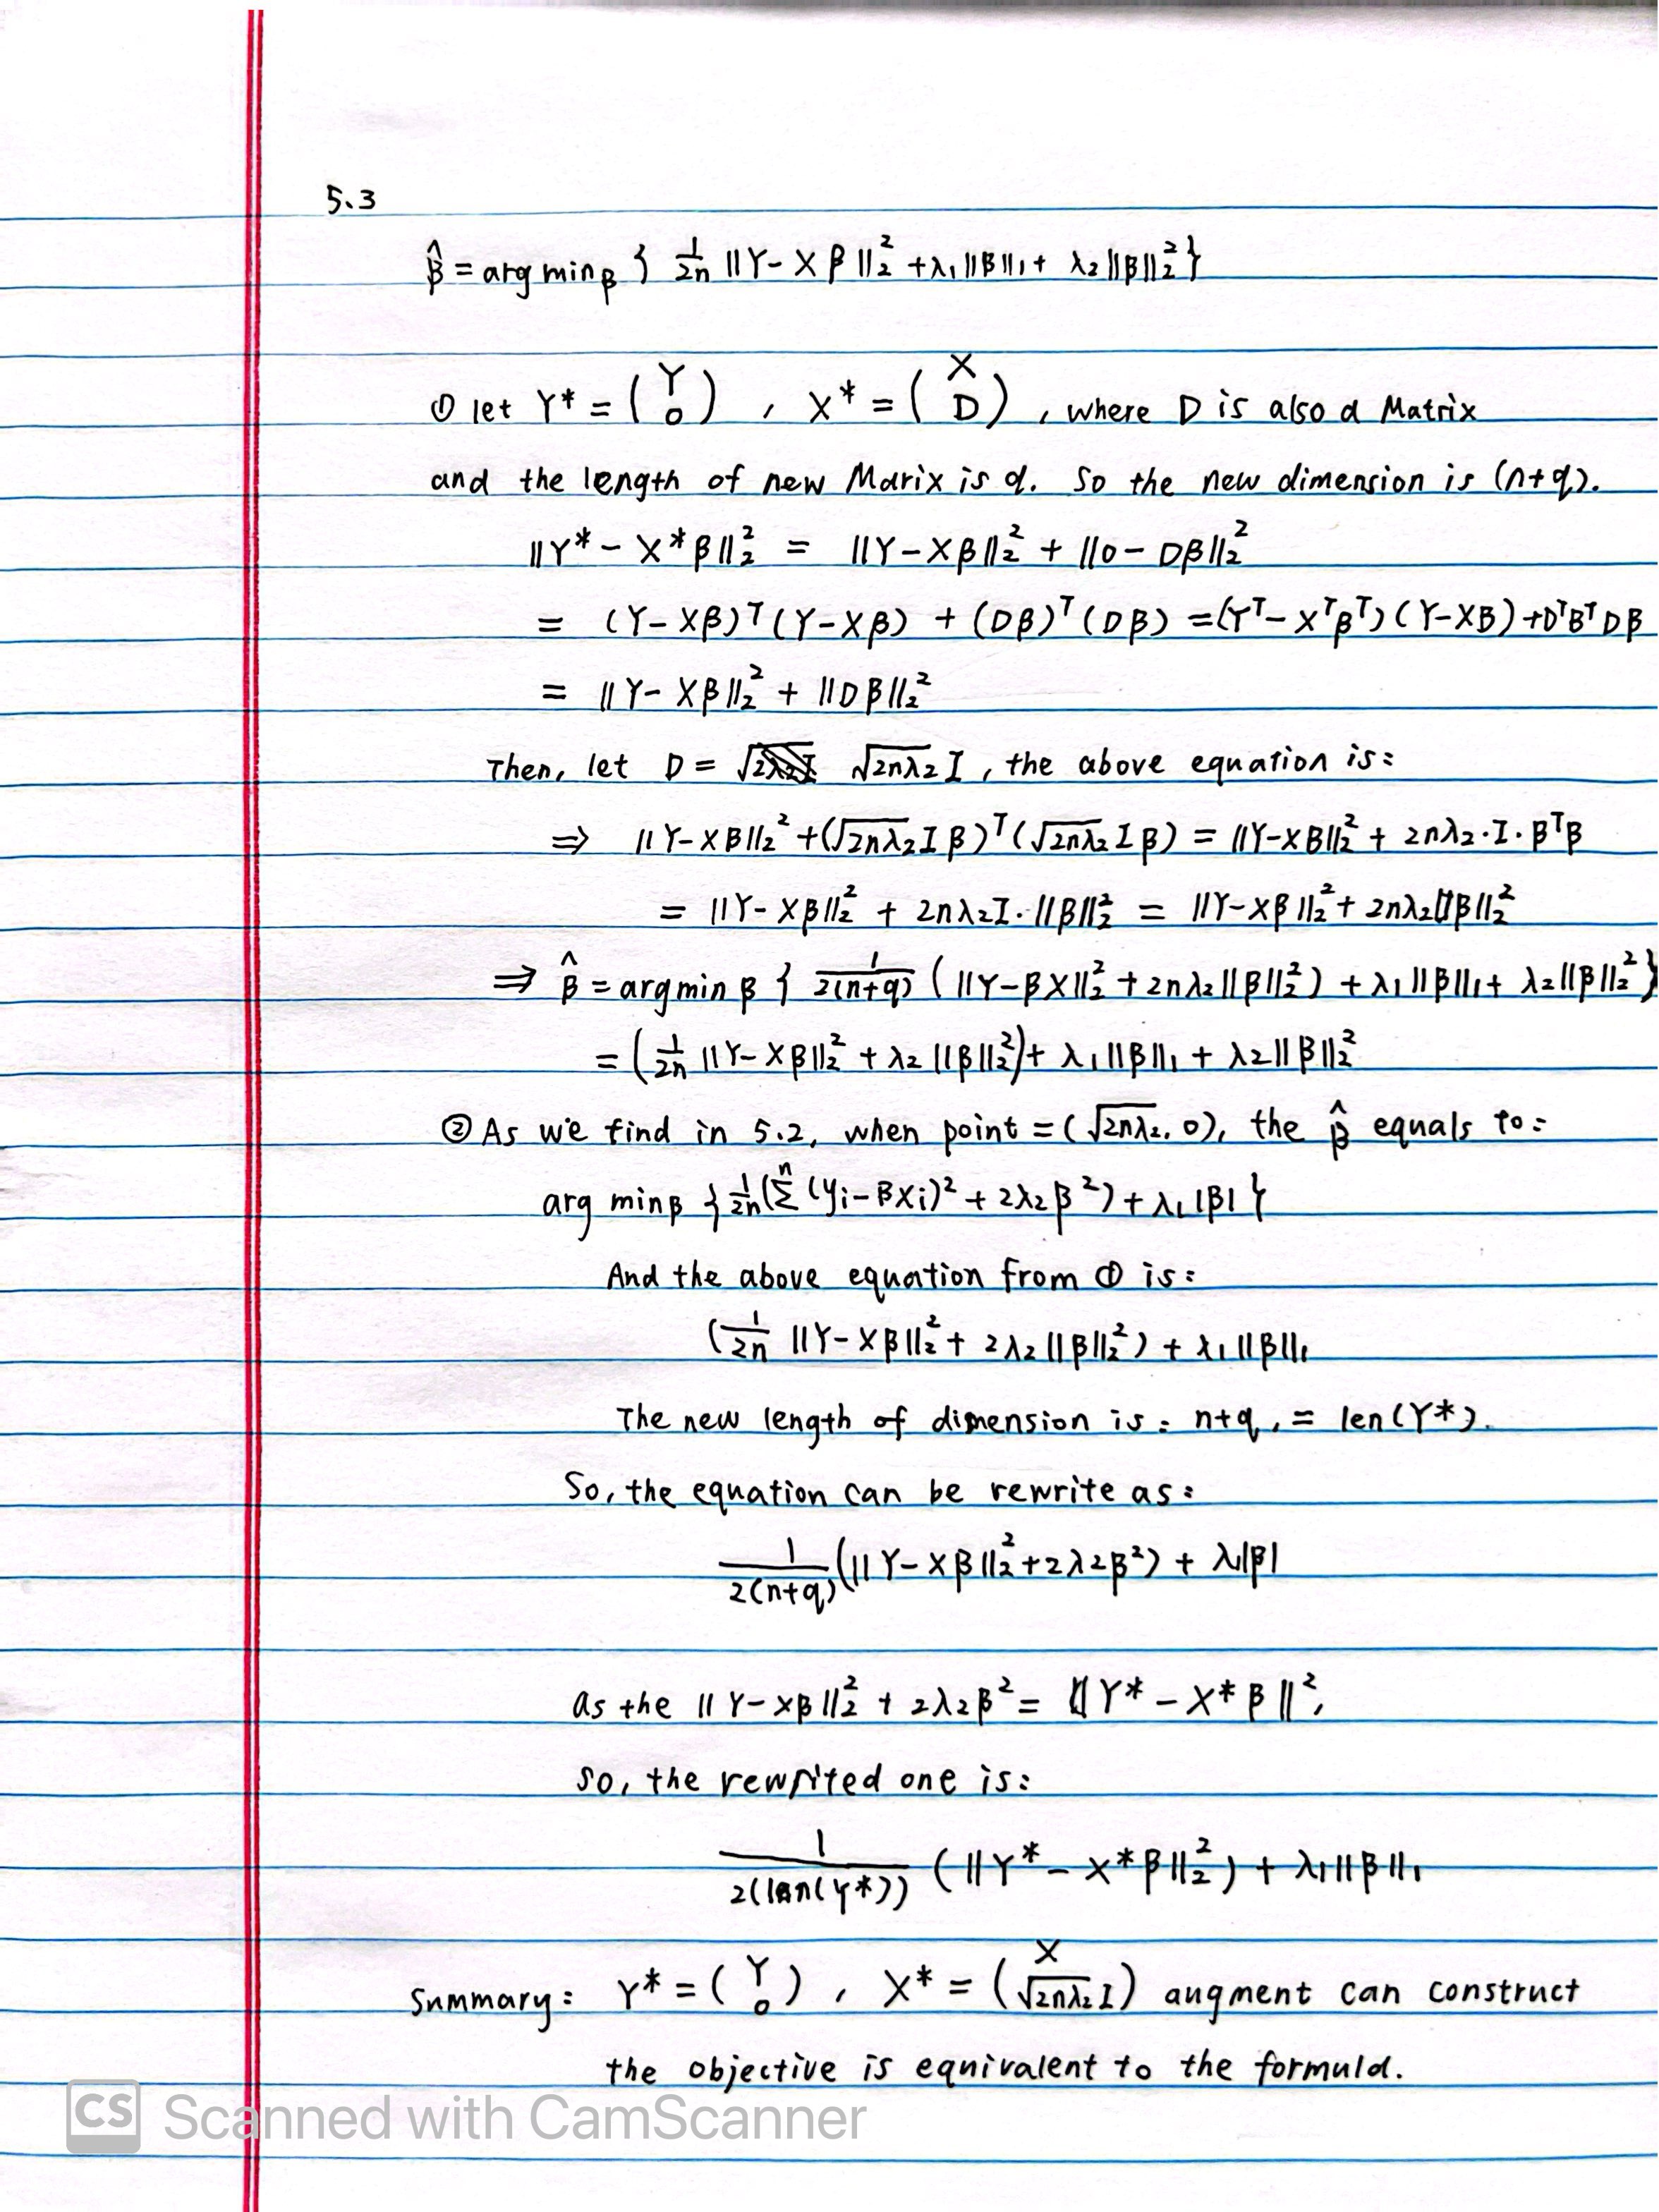 5.3
β̂ = arg min_β { 1/2n ||Y - Xβ||₂² + λ₁||β||₁ + λ₂||β||₂² }
① let Y* = (Y 0), X* = (X D), where D is also a Matrix
and the length of new Marix is q. So the new dimension is (n+q).
||Y* - X*β||₂² = ||Y - Xβ||₂² + ||0 - Dβ||₂²
= (Y - Xβ)ᵀ(Y - Xβ) + (Dβ)ᵀ(Dβ) = (Yᵀ - Xᵀβᵀ)(Y - Xβ) + DᵀβᵀDβ
= ||Y - Xβ||₂² + ||Dβ||₂²
Then, let D = √(2nλ₂) I, the above equation is:
⇒ ||Y - Xβ||₂² + (√(2nλ₂) I β)ᵀ(√(2nλ₂) I β) = ||Y - Xβ||₂² + 2nλ₂·I·βᵀβ
= ||Y - Xβ||₂² + 2nλ₂I·||β||₂² = ||Y - Xβ||₂² + 2nλ₂||β||₂²
⇒ β̂ = argmin β { 1/2(n+q) (||Y - βX||₂² + 2nλ₂||β||₂²) + λ₁||β||₁ + λ₂||β||₂² }
= (1/2n ||Y - Xβ||₂² + λ₂||β||₂²) + λ₁||β||₁ + λ₂||β||₂²
② As we find in 5.2, when point = (√(2nλ₂), 0), the β̂ equals to:
arg min_β { 1/2n (Σⁿ (yi - βxi)² + 2λ₂β²) + λ₁|β| }
And the above equation from ① is:
(1/2n ||Y - Xβ||₂² + 2λ₂||β||₂²) + λ₁||β||₁
The new length of dimension is: n+q, = len(Y*).
So, the equation can be rewrite as:
1/2(n+q) (||Y - Xβ||₂² + 2λ₂β²) + λ₁|β|
as the ||Y - Xβ||₂² + 2λ₂β² = ||Y* - X*β||²,
so, the rewrited one is:
1/2(len(Y*)) (||Y* - X*β||₂²) + λ₁||β||₁
Summary: Y* = (Y 0), X* = (X √(2nλ₂) I) augment can construct
the objective is equivalent to the formula.
CS Scanned with CamScanner